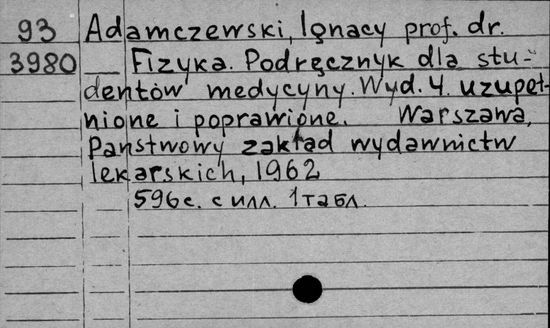 93 Adamczewski, Ignacy prof. dr.
3980 Fizyka. Podręcznyk dla stu-
dentów medycyny. Wyd. 4. uzupeł-
nione i poprawione. Warszawa,
Państwowy zakład wydawnictw
lekarskich, 1962
596с. с илл. 1 табл.